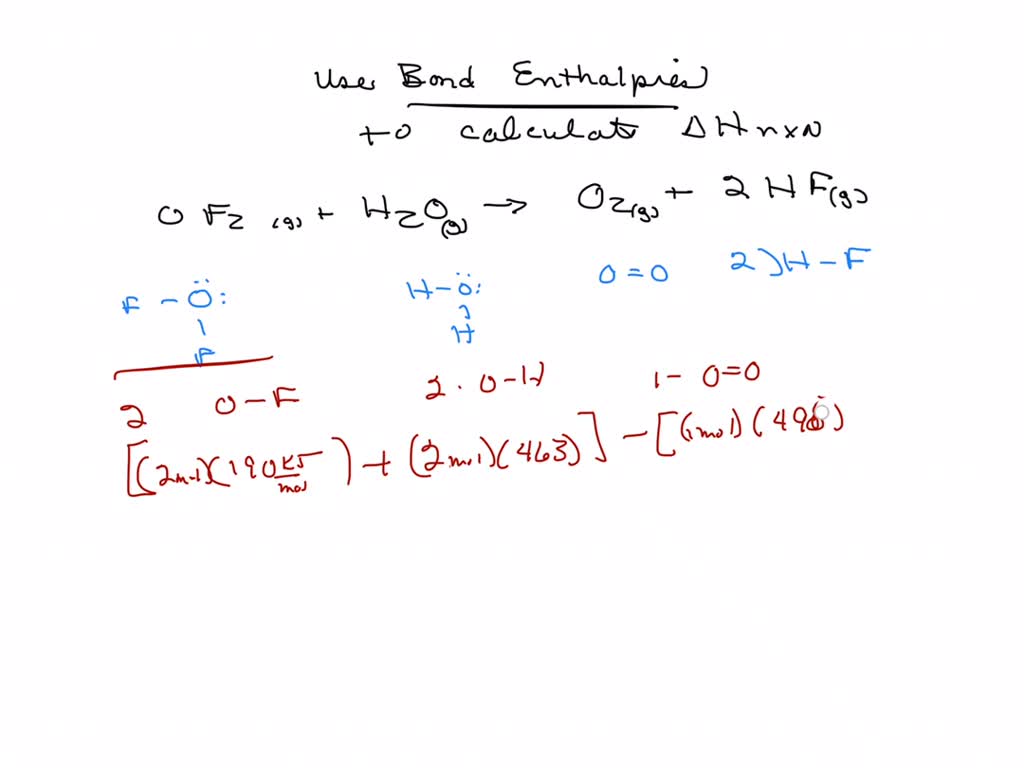 Use Bond Enthalpies
to calculate ΔHrxn
OF2 (g) + H2O(g) → O2(g) + 2 HF(g)
F – Ö: H – Ö: O = O 2) H – F
F H
2 O – F 2 · O – H 1 – O = O
[(2mol)(190 kJ/mol) + (2mol)(463)] – [(1mol)(498)